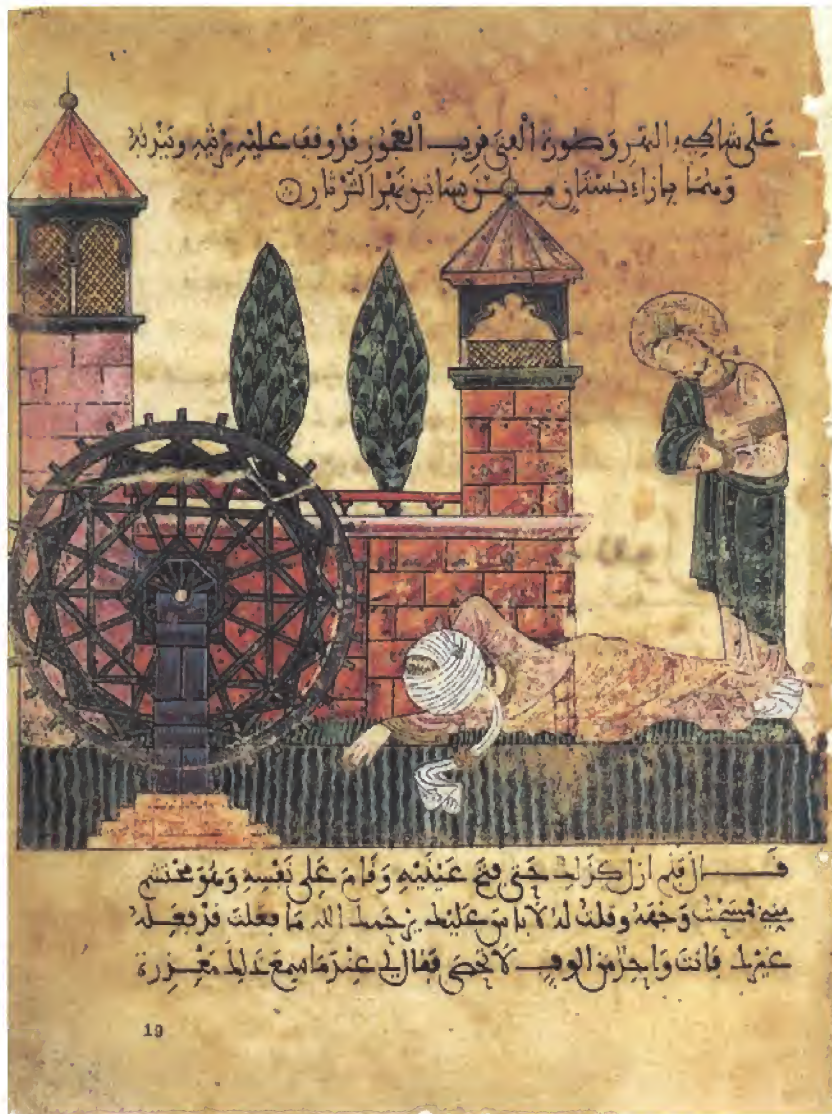 على شاطئ النهر وصورة الفتى قريب العجوز قد وقف عليه يرثيه ويندبه
وهما بازاء بستان من بساتين نهر الثرثار
قال فلم ازل كذلك حتى فتح عينيه وقام على نفسه وهو محتشم
مني فمسحت وجهه وقلت له لا باس عليك يرحمك الله ما فعلت قد فعله
غيرك فانت واحد من الوف لا تحصى فقال لي عندما سمع ذلك معذرة
19